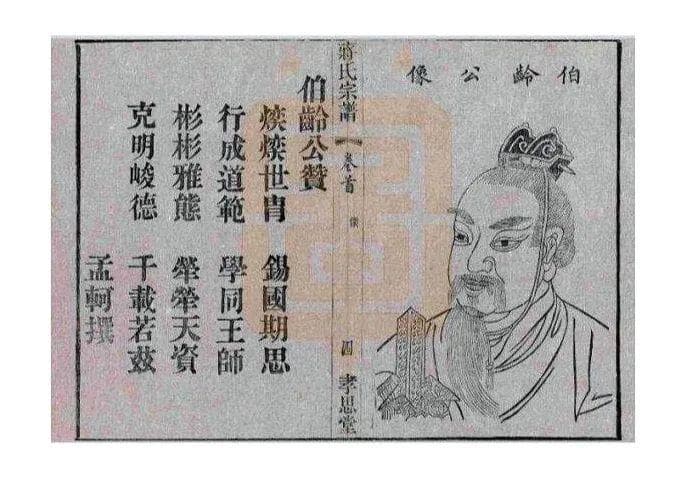 伯齡公像
蔣氏宗譜
卷首
像
四
孝思堂
伯齡公贊
煥煥世胄 錫國期思
行成道範 學同王師
彬彬雅態 犖犖天資
克明峻德 千載若茲
孟軻撰